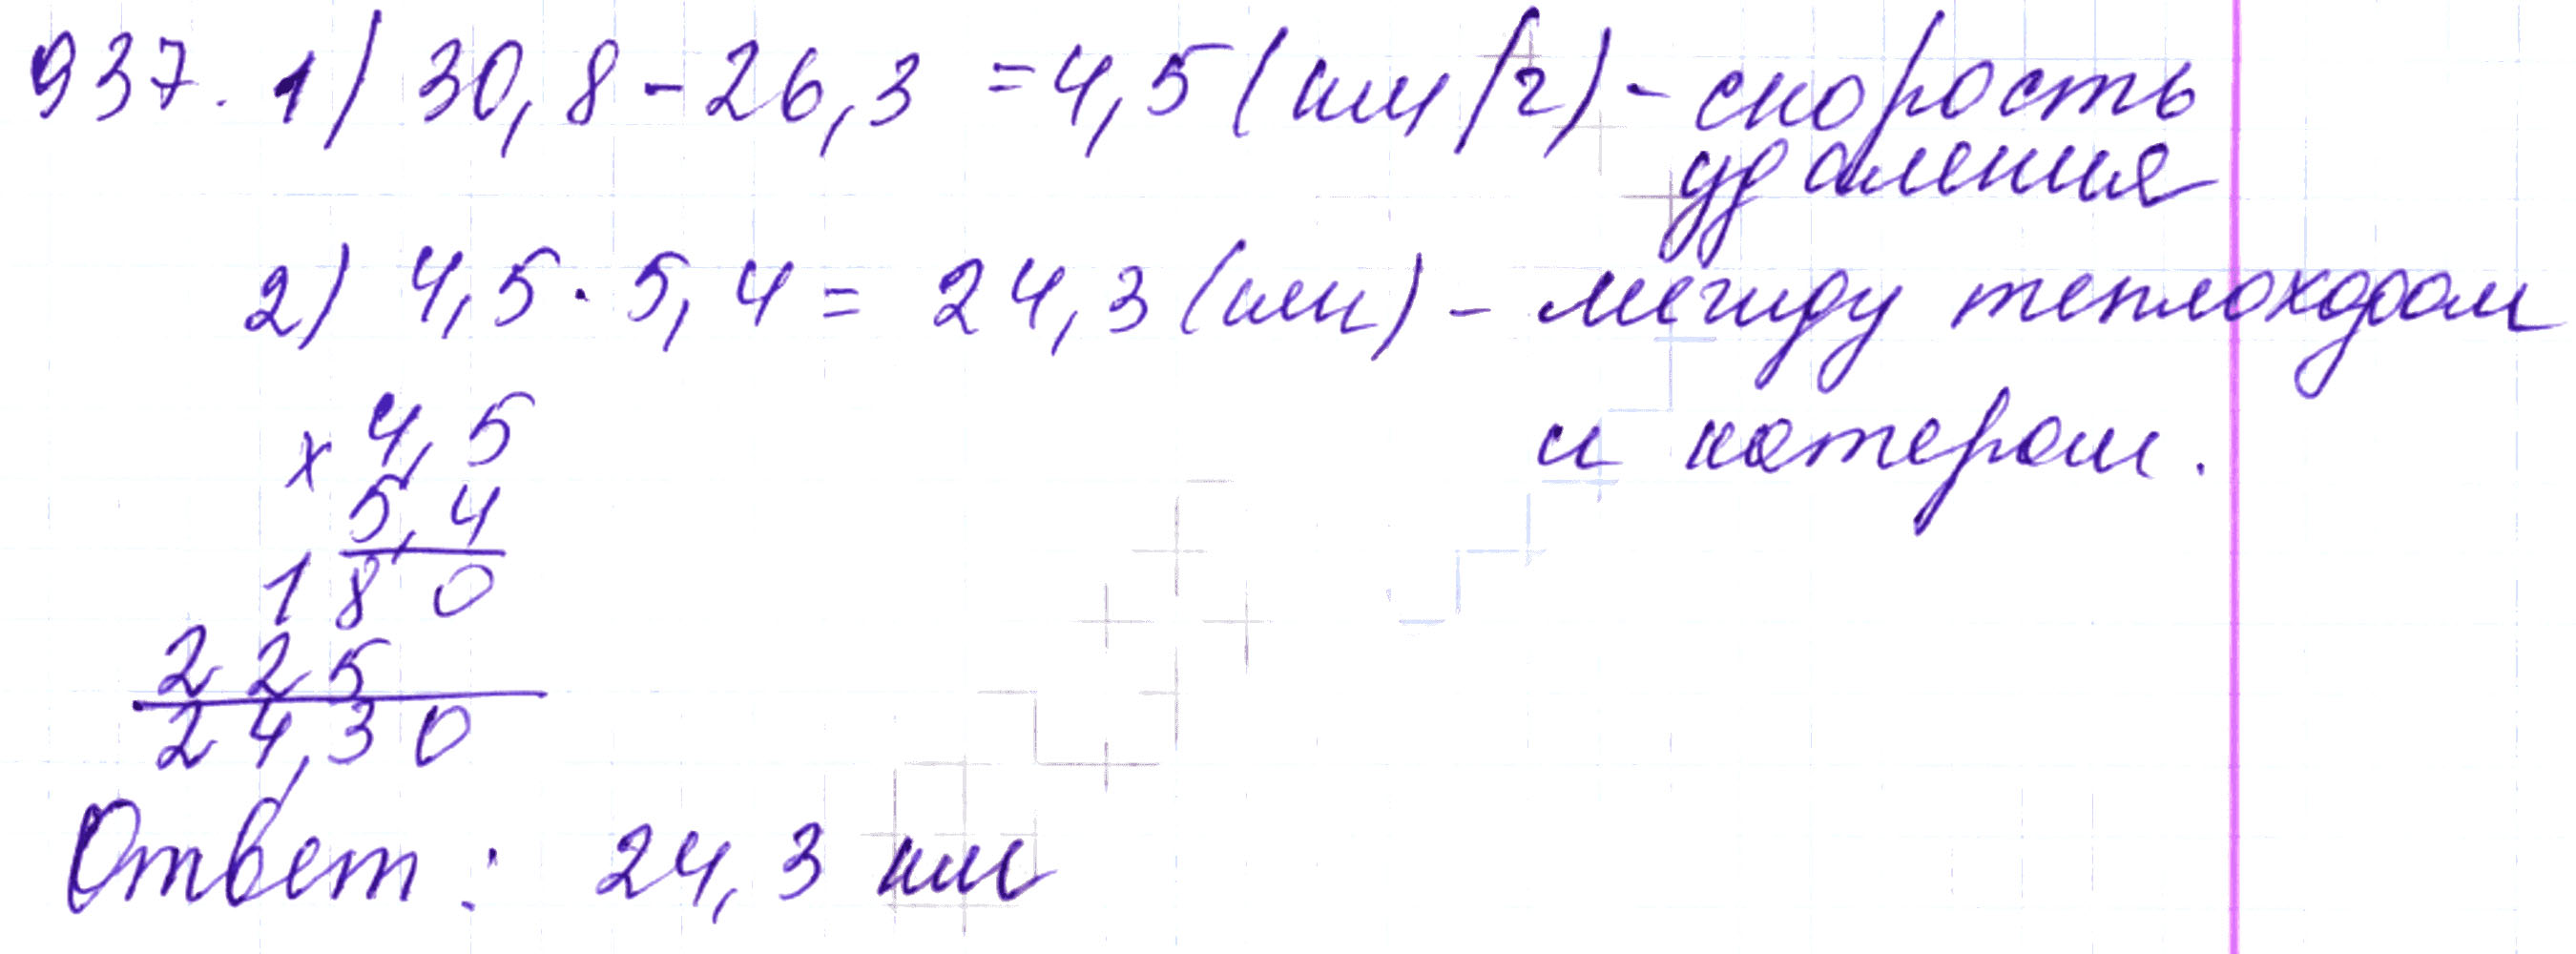 937. 1) 30,8 - 26,3 = 4,5 (км/ч) - скорость
удаления
2) 4,5 · 5,4 = 24,3 (км) - между теплоходом
и катером.
× 4,5
5,4
180
225
24,30
Ответ: 24,3 км